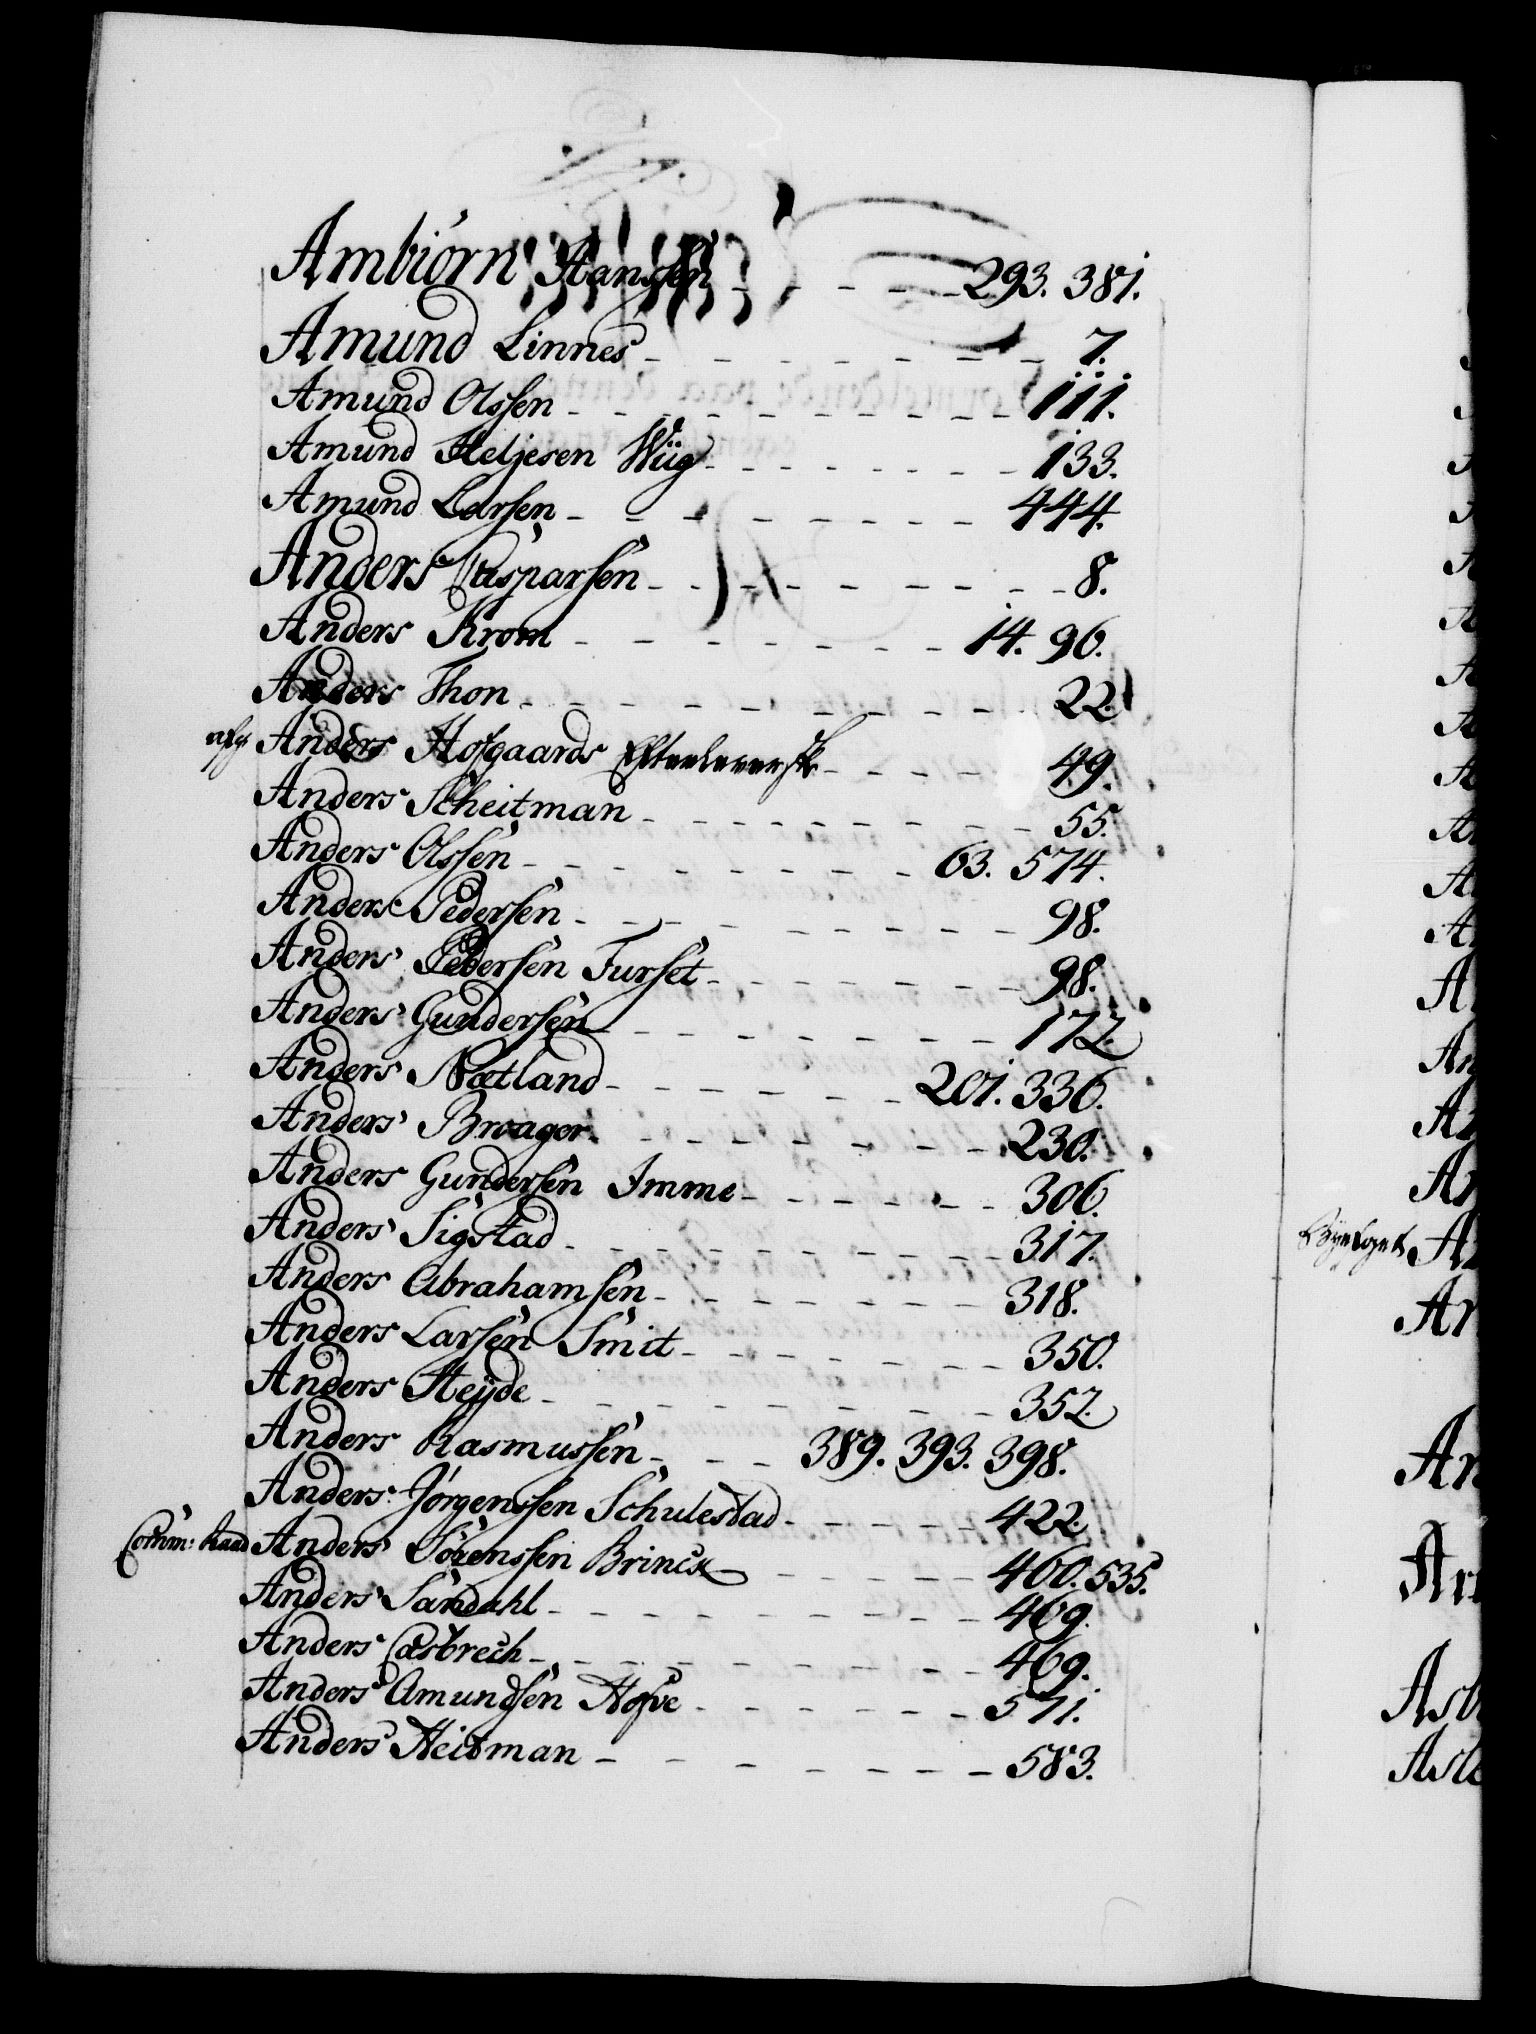 Ambiörn Hanssen - - - - - 293. 381.
Amund Linnes - - - - - - - - 7.
Amund Olssen - - - - - - - - 111.
Amund Heljesen Wiig - - - - - - - 133.
Amund Larsen - - - - - - - - 444.
Anders Casparsen - - - - - - - - 8.
Anders Krom - - - - - - - 14. 96.
Anders Thon - - - - - - - - 22.
afg: Anders Hofgaards Efterleverske - - - - - 49.
Anders Scheitman - - - - - - - - 55.
Anders Olssen - - - - - - - - 63. 574.
Anders Pedersen - - - - - - - - 98.
Anders Pedersen Furset - - - - - - - 98.
Anders Gundersen - - - - - - - - 172.
Anders Nætland - - - - - - - 201. 336.
Anders Broager - - - - - - - 230.
Anders Gundersen Imme - - - - - - 306.
Anders Sigstad - - - - - - - - 317.
Anders Abrahamsen - - - - - - - 318.
Anders Larsen Smit - - - - - - - 350.
Anders Heÿde - - - - - - - - 352.
Anders Rasmussen - - - 389. 393. 398.
Anders Jörgenssen Schulestad - - - - - 422.
Comm: Raad Anders Sörenssen Brinck - - - - - 460. 535.
Anders Sandahl - - - - - - - - 469.
Anders Casbrech - - - - - - - - 469.
Anders Amundsen Hofve - - - - - - 571.
Anders Heitman - - - - - - - 583.